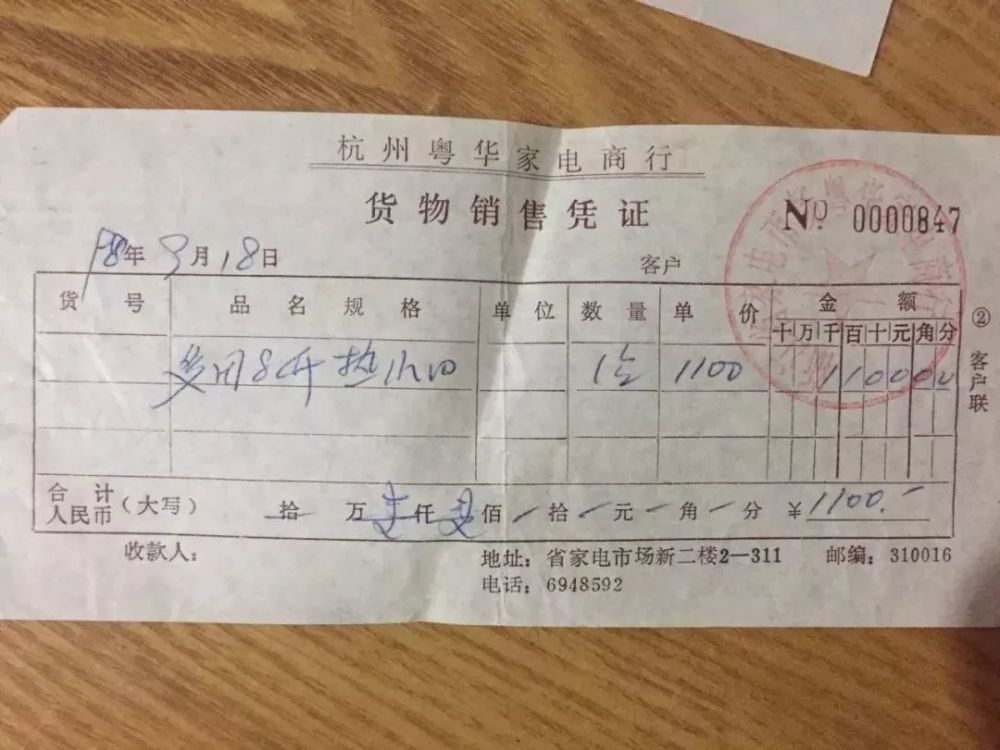 杭州粤华家电商行
货物销售凭证
No. 0000847
98年9月18日
客户
货号 品名规格 单位 数量 单价 金额
十万千百十元角分
1台 1100 110000
合计人民币(大写) 拾 万 壹仟 壹佰 - 拾 - 元 - 角 - 分 ¥1100.-
收款人:
地址:省家电市场新二楼2—311 邮编:310016
电话:6948592
② 客户联